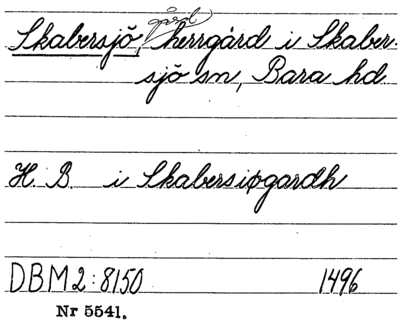 gård
Skabersjö, herrgård i Skaber-
sjö sn, Bara hd
H. B. i Skabersiøgardh
DBM2:8150 1496
Nr 5541.